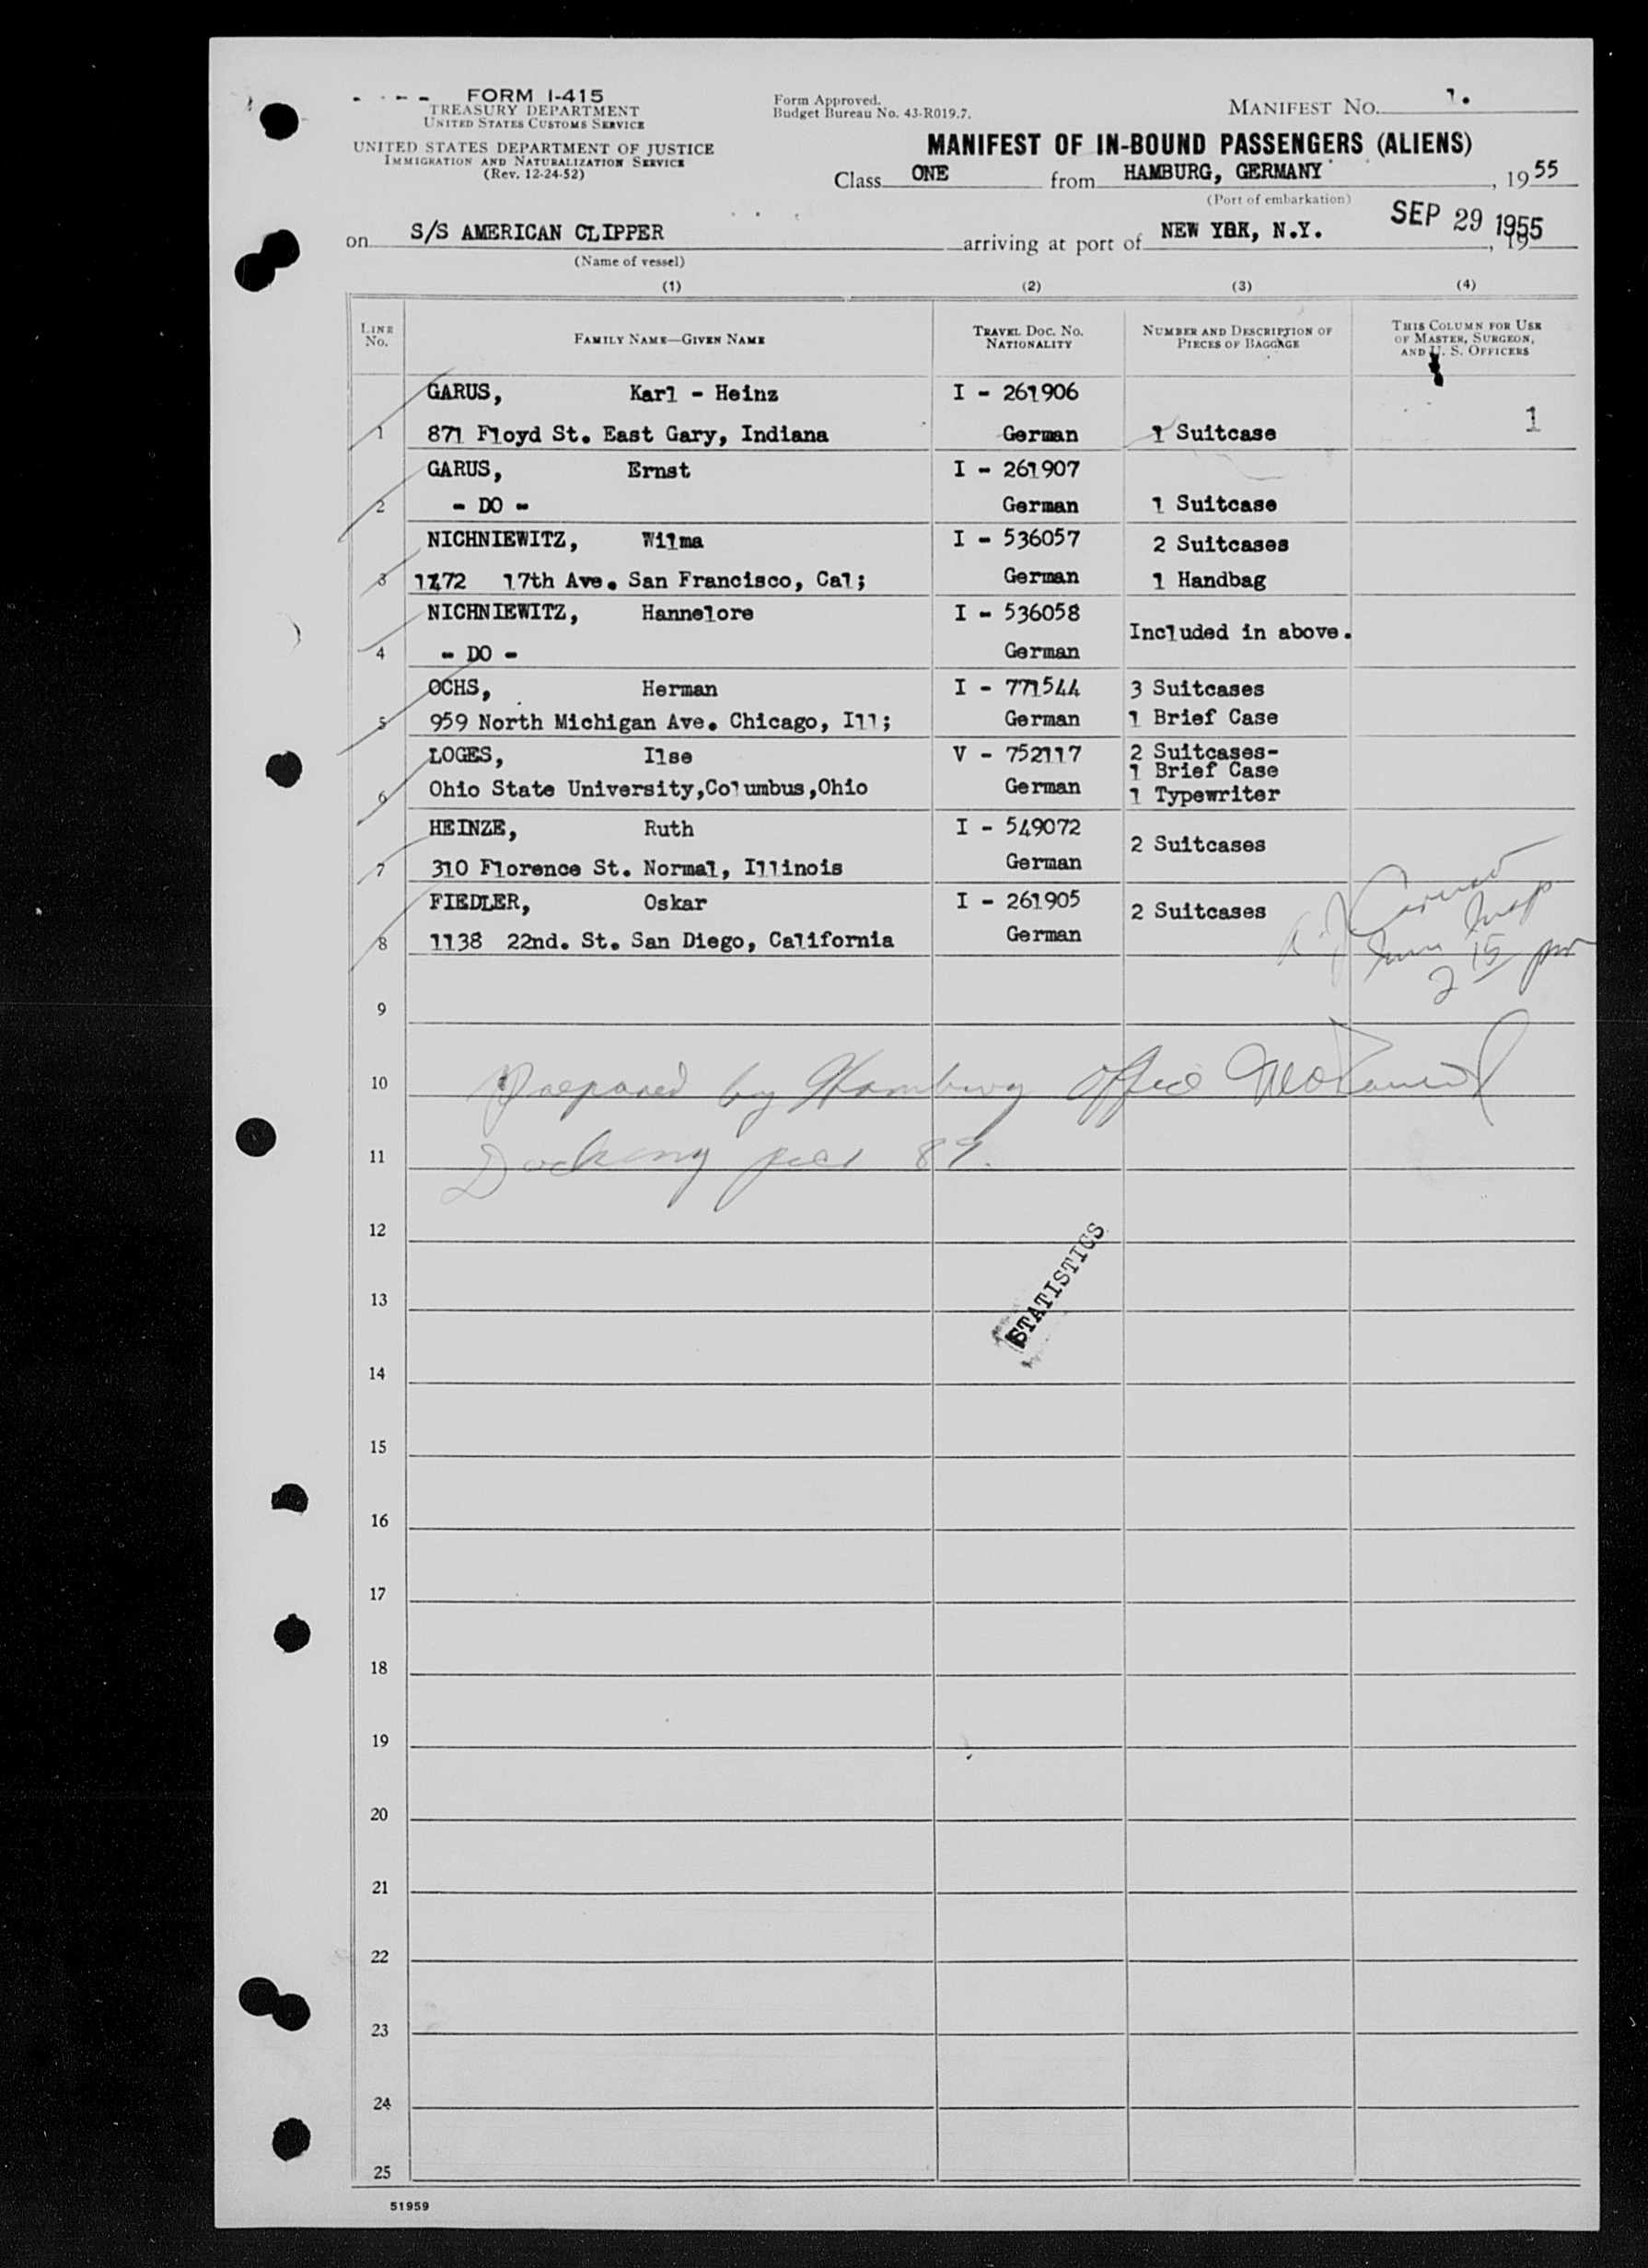 FORM I-415
TREASURY DEPARTMENT
UNITED STATES CUSTOMS SERVICE
UNITED STATES DEPARTMENT OF JUSTICE
IMMIGRATION AND NATURALIZATION SERVICE
(Rev. 12-24-52)
Form Approved.
Budget Bureau No. 43-R019.7.
MANIFEST NO. 1.
MANIFEST OF IN-BOUND PASSENGERS (ALIENS)
Class ONE from HAMBURG, GERMANY, 1955
(Port of embarkation)
on S/S AMERICAN CLIPPER arriving at port of NEW YBK, N.Y. SEP 29 1955, 19
(Name of vessel)
(1) (2) (3) (4)
LINE No. FAMILY NAME—GIVEN NAME TRAVEL DOC. NO. NATIONALITY NUMBER AND DESCRIPTION OF PIECES OF BAGGAGE THIS COLUMN FOR USE OF MASTER, SURGEON, AND U. S. OFFICERS
GARUS, Karl - Heinz I - 261906
1 871 Floyd St. East Gary, Indiana German 1 Suitcase 1
GARUS, Ernst I - 261907
2 - DO - German 1 Suitcase
NICHNIEWITZ, Wilma I - 536057 2 Suitcases
3 1172 17th Ave. San Francisco, Cal; German 1 Handbag
NICHNIEWITZ, Hannelore I - 536058 Included in above.
4 - DO - German
OCHS, Herman I - 771544 3 Suitcases
5 959 North Michigan Ave. Chicago, Ill; German 1 Brief Case
LOGES, Ilse V - 752117 2 Suitcases-
1 Brief Case
6 Ohio State University,Columbus,Ohio German 1 Typewriter
HEINZE, Ruth I - 549072 2 Suitcases
7 310 Florence St. Normal, Illinois German
FIEDLER, Oskar I - 261905 2 Suitcases
8 1138 22nd. St. San Diego, California German
Imm Insp
2 15 pm
9
10 Prepared by Hamburg Office
11 Docking pier
12
STATISTICS
13
14
15
16
17
18
19
20
21
22
23
24
25
51959